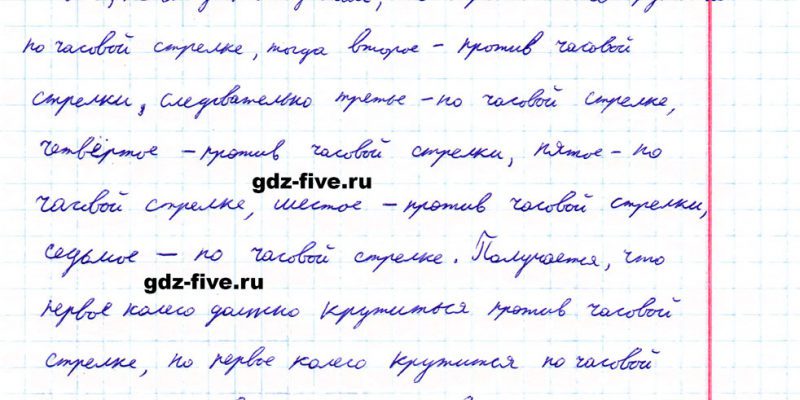 по часовой стрелке, тогда второе - против часовой
стрелки, следовательно третье - по часовой стрелке,
четвёртое - против часовой стрелки, пятое - по
gdz-five.ru
часовой стрелке, шестое - против часовой стрелки,
седьмое - по часовой стрелке. Получается, что
gdz-five.ru
первое колесо должно крутиться против часовой
стрелке, но первое колесо крутится по часовой